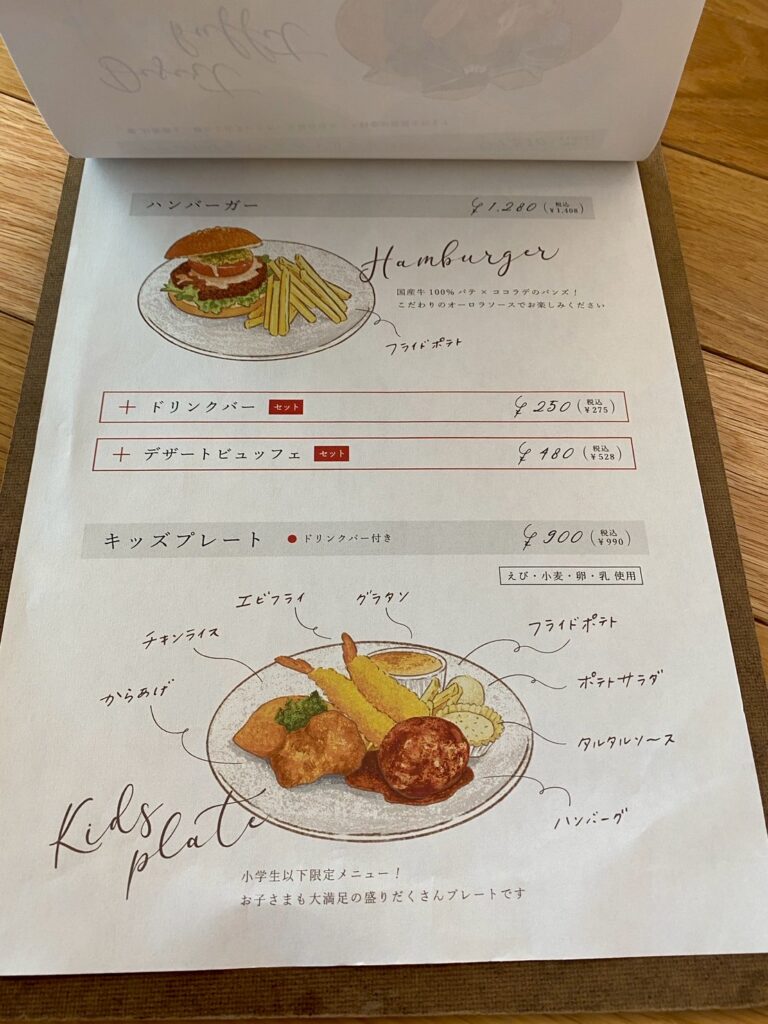 Dessert
buffet
ハンバーガー ¥1,280 (税込 ¥1,408)
Hamburger
国産牛100%パテ×ココラデのバンズ！
こだわりのオーロラソースでお楽しみください
フライドポテト
＋ ドリンクバー セット ¥250 (税込 ¥275)
＋ デザートビュッフェ セット ¥480 (税込 ¥528)
キッズプレート ●ドリンクバー付き ¥900 (税込 ¥990)
えび・小麦・卵・乳 使用
エビフライ
グラタン
フライドポテト
チキンライス
ポテトサラダ
からあげ
タルタルソース
ハンバーグ
Kids
plate
小学生以下限定メニュー！
お子さまも大満足の盛りだくさんプレートです